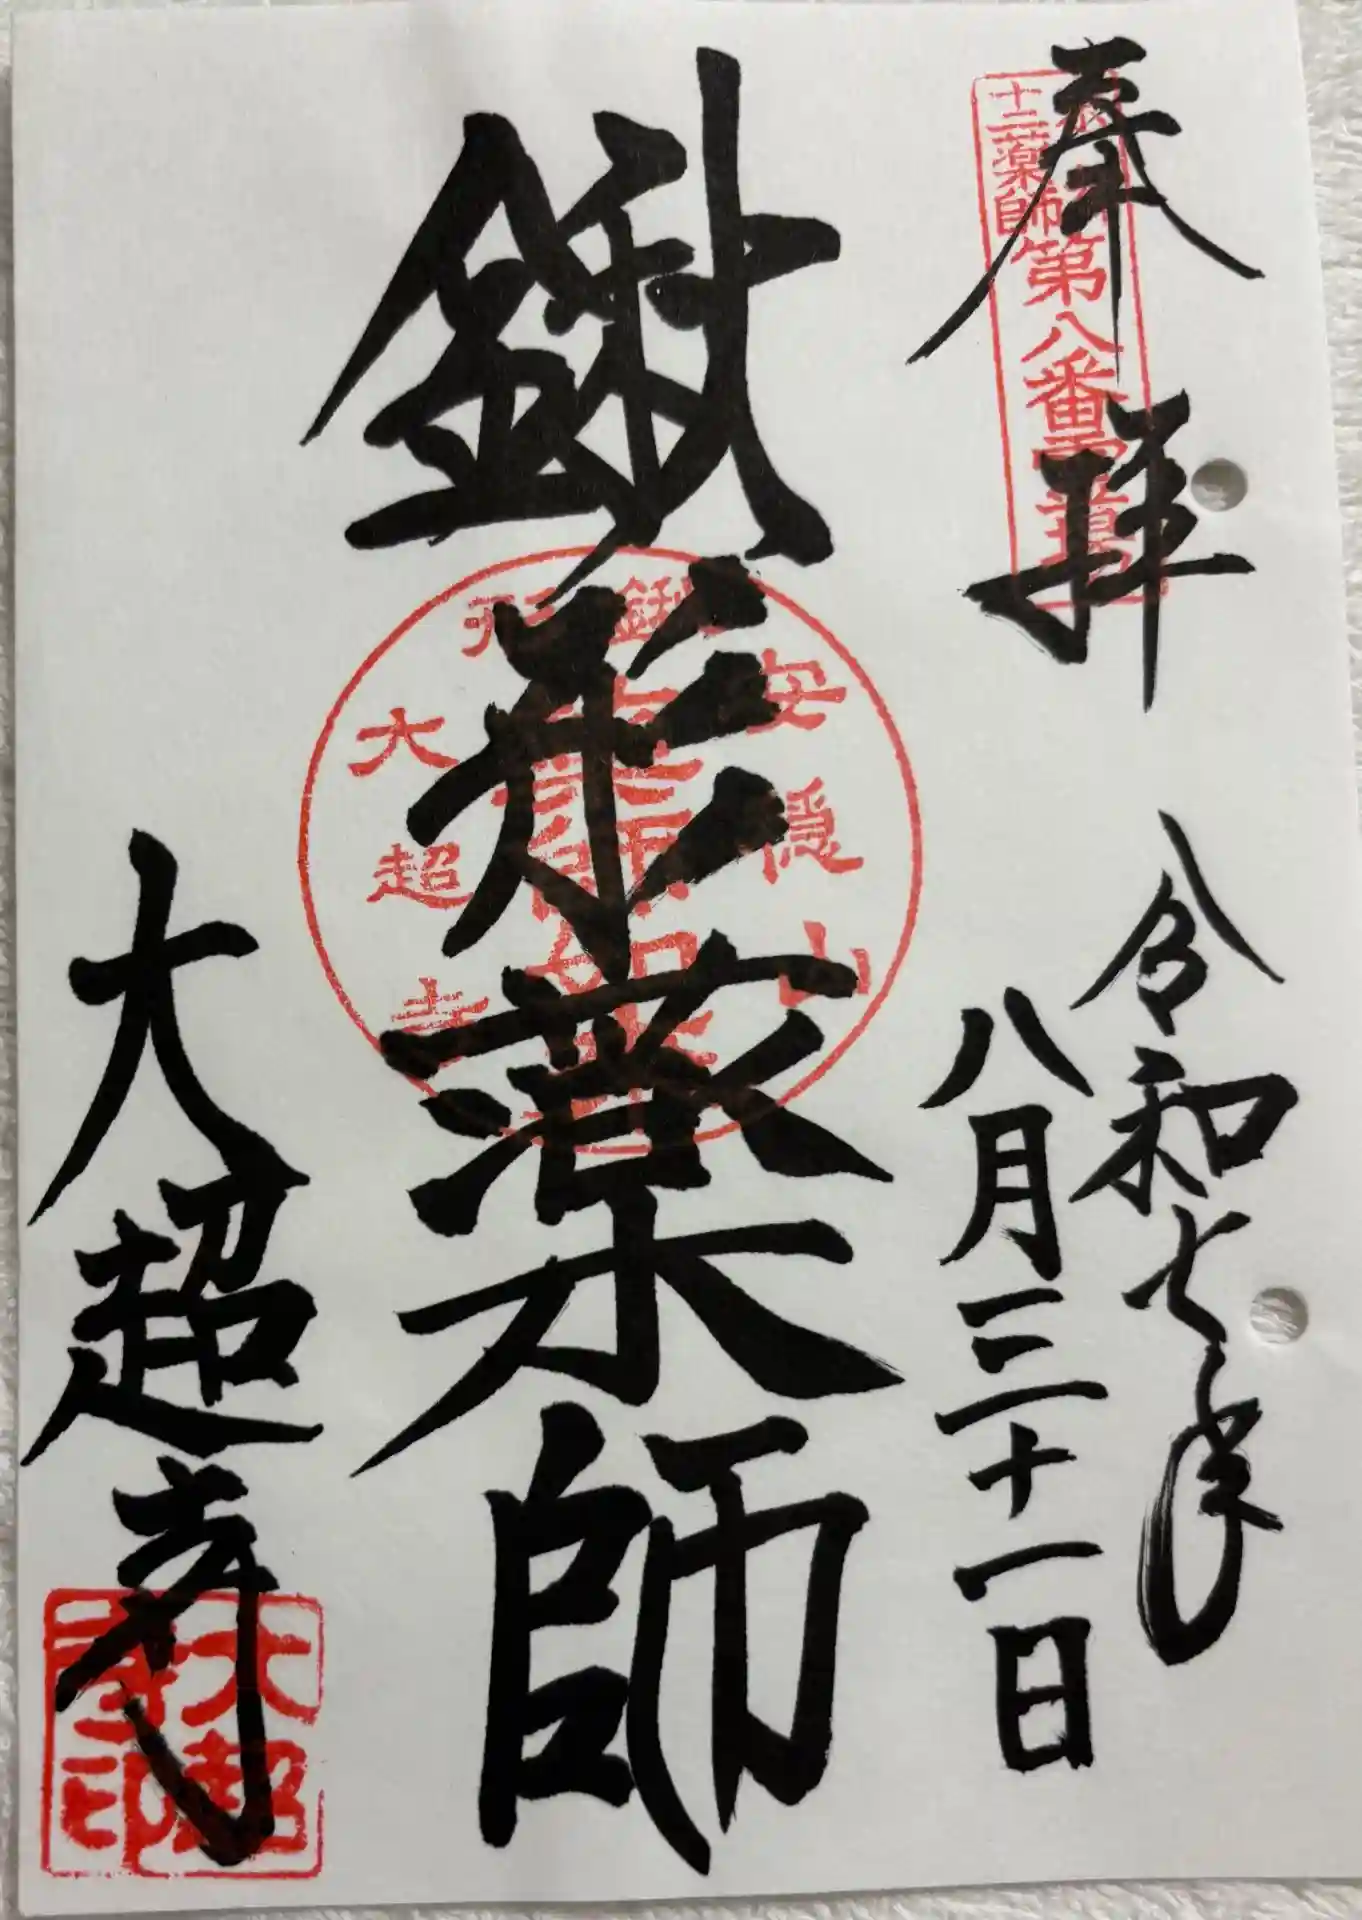 奉拝
十二薬師
第八番霊場
令和七年
八月三十一日
鍬形薬師
安隠山
鍬形
大超寺
大超寺
大超寺印